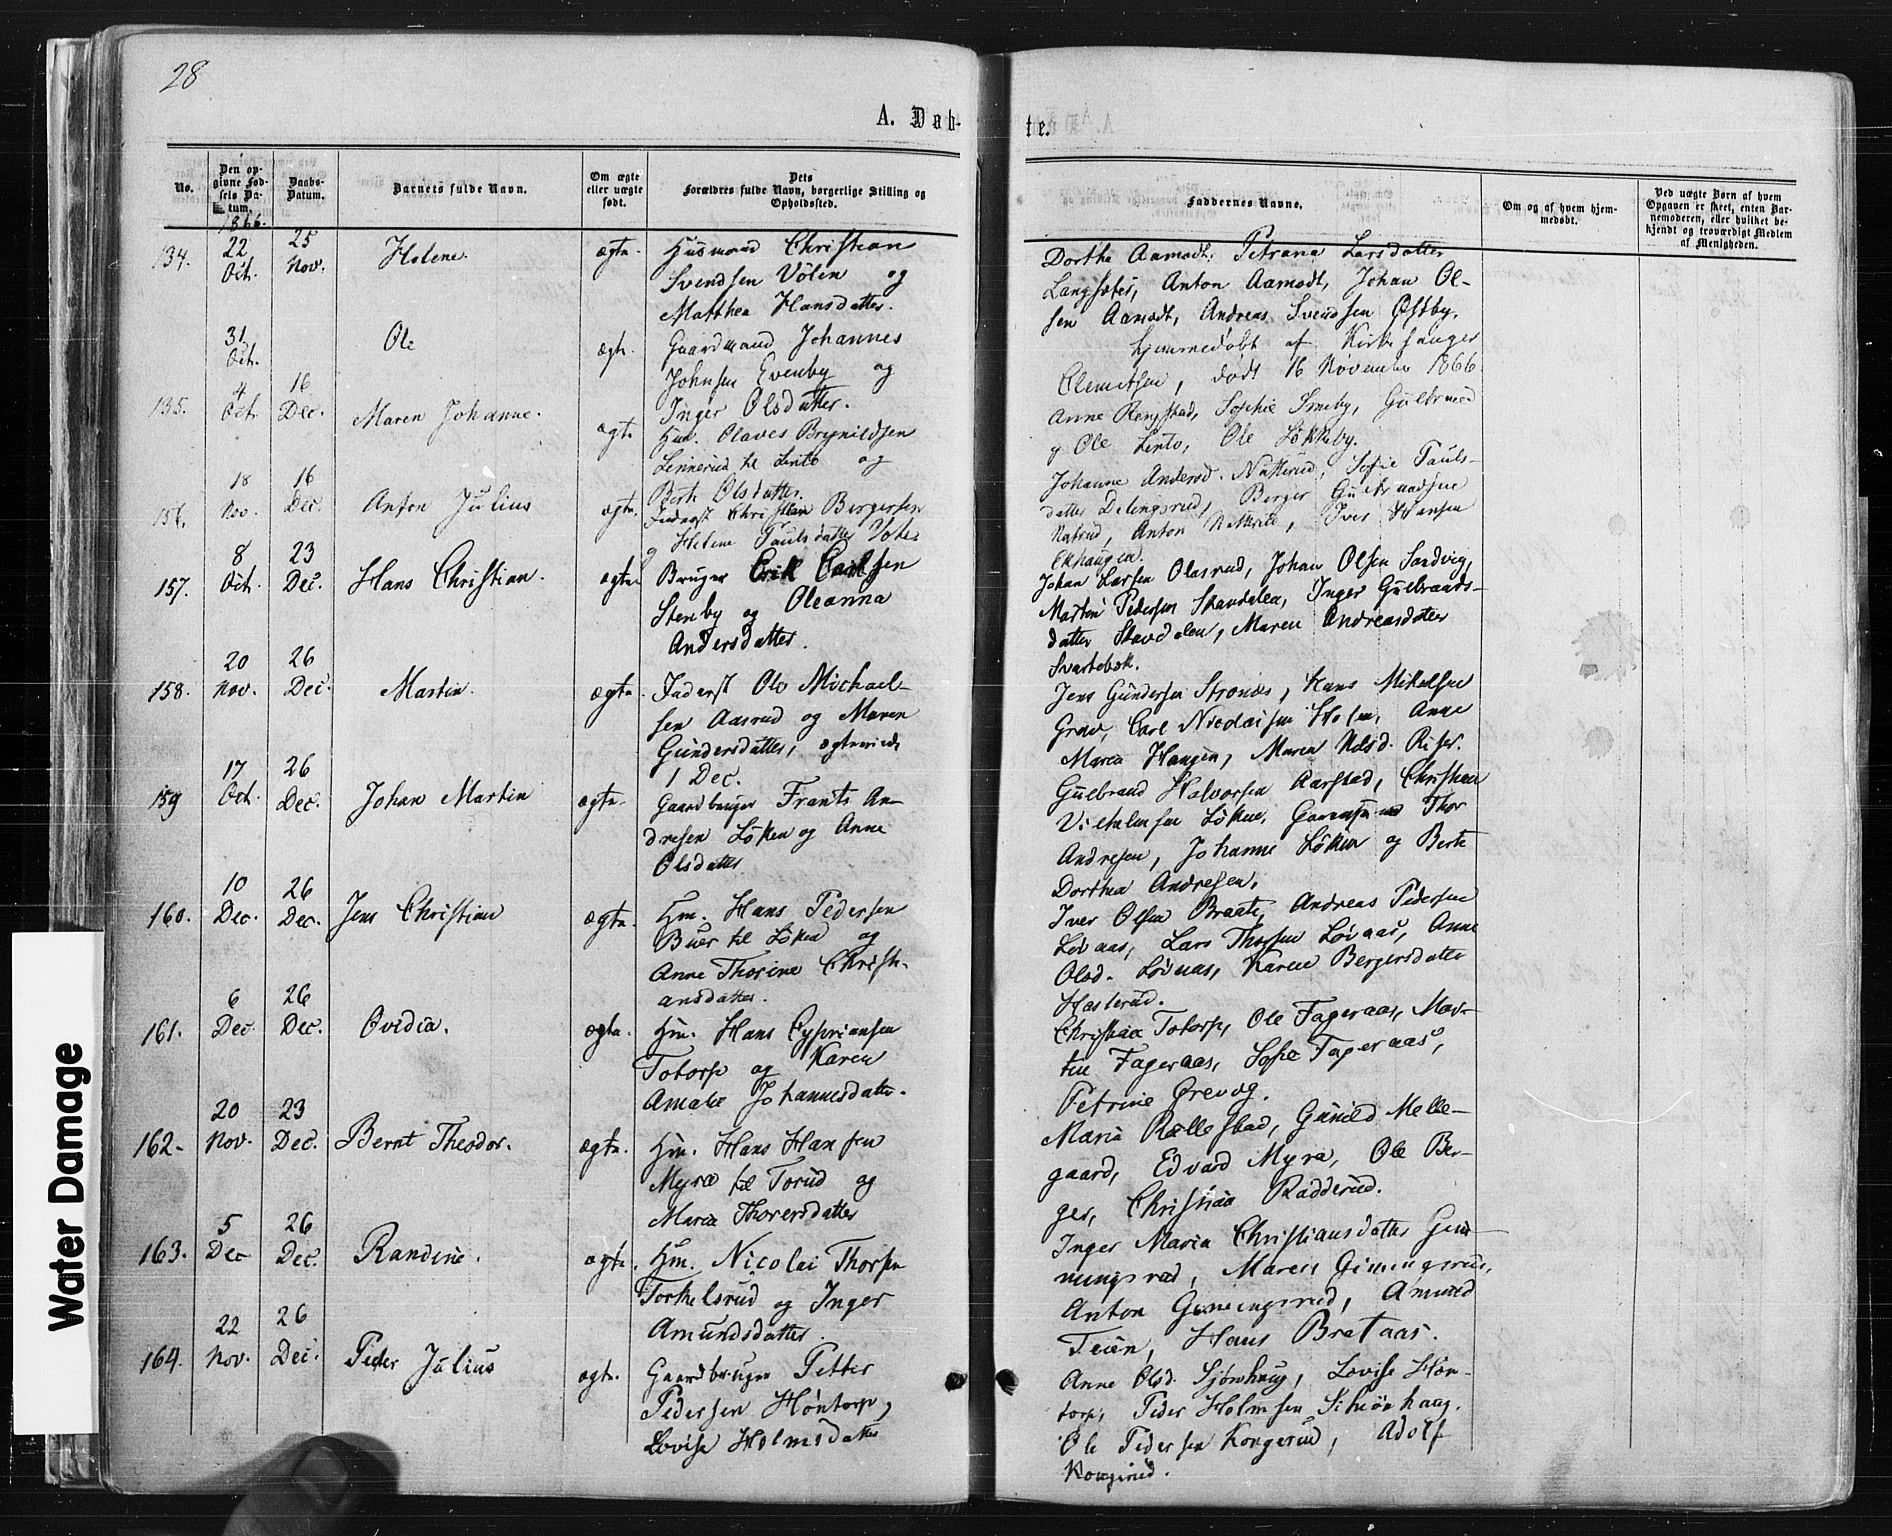 28
A. Døb-
te.
No.
Den op-
givne Fød-
sels Da-
tum.
Daabs-
Datum.
Barnets fulde Navn.
Om ægte
eller uægte
født.
Dets
Forældres fulde Navn, borgerlige Stilling og
Opholdssted.
Faddernes Navne.
Om og af hvem hjem-
medøbt.
Ved uægte Børn af hvem
Opgaven er skeet, enten Bar-
nemoderen, eller hvilket be-
kjendt og troværdigt Medlem
af Menigheden.
1866.
134. 22 Oct. 25 Nov. Helene. ægte. Husmand Christian
Svendsen Volen og
Matthea Hansdatter.
Dorthe Aamodt, Petrana Larsdatter
Langsæter, Anton Aamodt, Johan Ol-
sen Aamodt, Andreas Svendsen Østby.
31 Oct. Ole ægte. Gaardmand Johannes
Johnsen Evenby og
Inger Olsdatter.
hjemmedøbt af Kirkesanger
Clemetsen, død 16 November 1866
135. 4 Oct. 16 Dec. Maren Johanne. ægte Hm. Olaves Brynildsen
Linnerud til Linto og
Berte Olsdatter.
Anne Rengstad, Sophie Smeby, Gulbrand
og Ole Linto, Ole Løkkeby.
156. 18 Nov. 16 Dec. Anton Julius ægte. Inderst Christian Bergersen
og Helene Paulsdatter
Johanne Andersd. Natterud, Sofie Pauls-
datter Delingsrud, Berger Gulbrandsen
Natrud, Anton Natterud, Iver Hansen
Ekhaugen.
157. 8 Oct. 23 Dec. Hans Christian. ægte Bruger Erik Carlsen
Stenby og Oleanna
Andersdatter.
Johan Larsen Olasrud, Johan Olsen Sandvig,
Martin Pedersen Standalen, Inger Gulbrands-
datter Stavdalen, Maren Andreasdatter
Svartebæk.
158. 20 Nov. 26 Dec. Martin. ægte. Inderst Ole Michael-
sen Aasrud og Maren
Gundersdatter, ægteviede
1 Dec.
Jens Gundersen Strones, Hans Mikelsen
Grav, Carl Nicolaisen Holm, Anne
Maria Haugen, Maren Nilsd. Riser.
159 17 Oct. 26 Dec. Johan Martin ægte. Gaardbruger Frants An-
dresen Løken og Anne
Olsdatter
Gulbrand Halvorsen Aarstad, Christian
Vilhelmsen Løken, Thor
Andresen, Johanne Løken og Berte
Dorthea Andresen.
160. 10 Dec. 26 Dec. Jens Christian ægte. Hm. Hans Pedersen
Buer til Løken og
Anne Thorine Christi-
ansdatter.
Iver Olsen Braate, Andreas Pedersen
Løvaas, Lars Thorsen Løvaas, Anne
Olsd. Løvaas, Karen Bergersdatter
Hasterud.
161. 6 Dec. 26 Dec. Ovidia. ægte. Hm. Hans Cypriansen
Totorp og Karen
Amalie Johannesdatter.
Christian Totorp, Ole Fageraas, Mar-
tin Fageraas, Sofie Fageraas,
Petrine Ørevog.
162. 20 Nov. 23 Dec. Bernt Theodor. ægte. Hm. Hans Hansen
Myra til Torud og
Maria Thorersdatter
Maria Rollestad, Gunild Melle-
gaard, Edvard Myra, Ole Ber-
ger, Christian Radderud.
163. 5 Dec 26 Dec. Randine. ægte. Hm. Nicolai Thorsen
Torkelsrud og Inger
Amundsdatter.
Inger Maria Christiansdatter Gim-
mingsrud, Maren Gimingsrud,
Anton Gimingsrud, Amund
Teien, Hans Brataas.
164. 22 Nov. 26 Dec. Peder Julius ægte. Gaardbruger Petter
Pedersen Høntorp,
Lovise Holmsdatter
Anne Olsd. Sjønhaug, Lovise Høn-
torp, Peder Holmsen Schiønhaug.
Ole Pedersen Kongerud, Adolf
Kongerud.
Water Damage